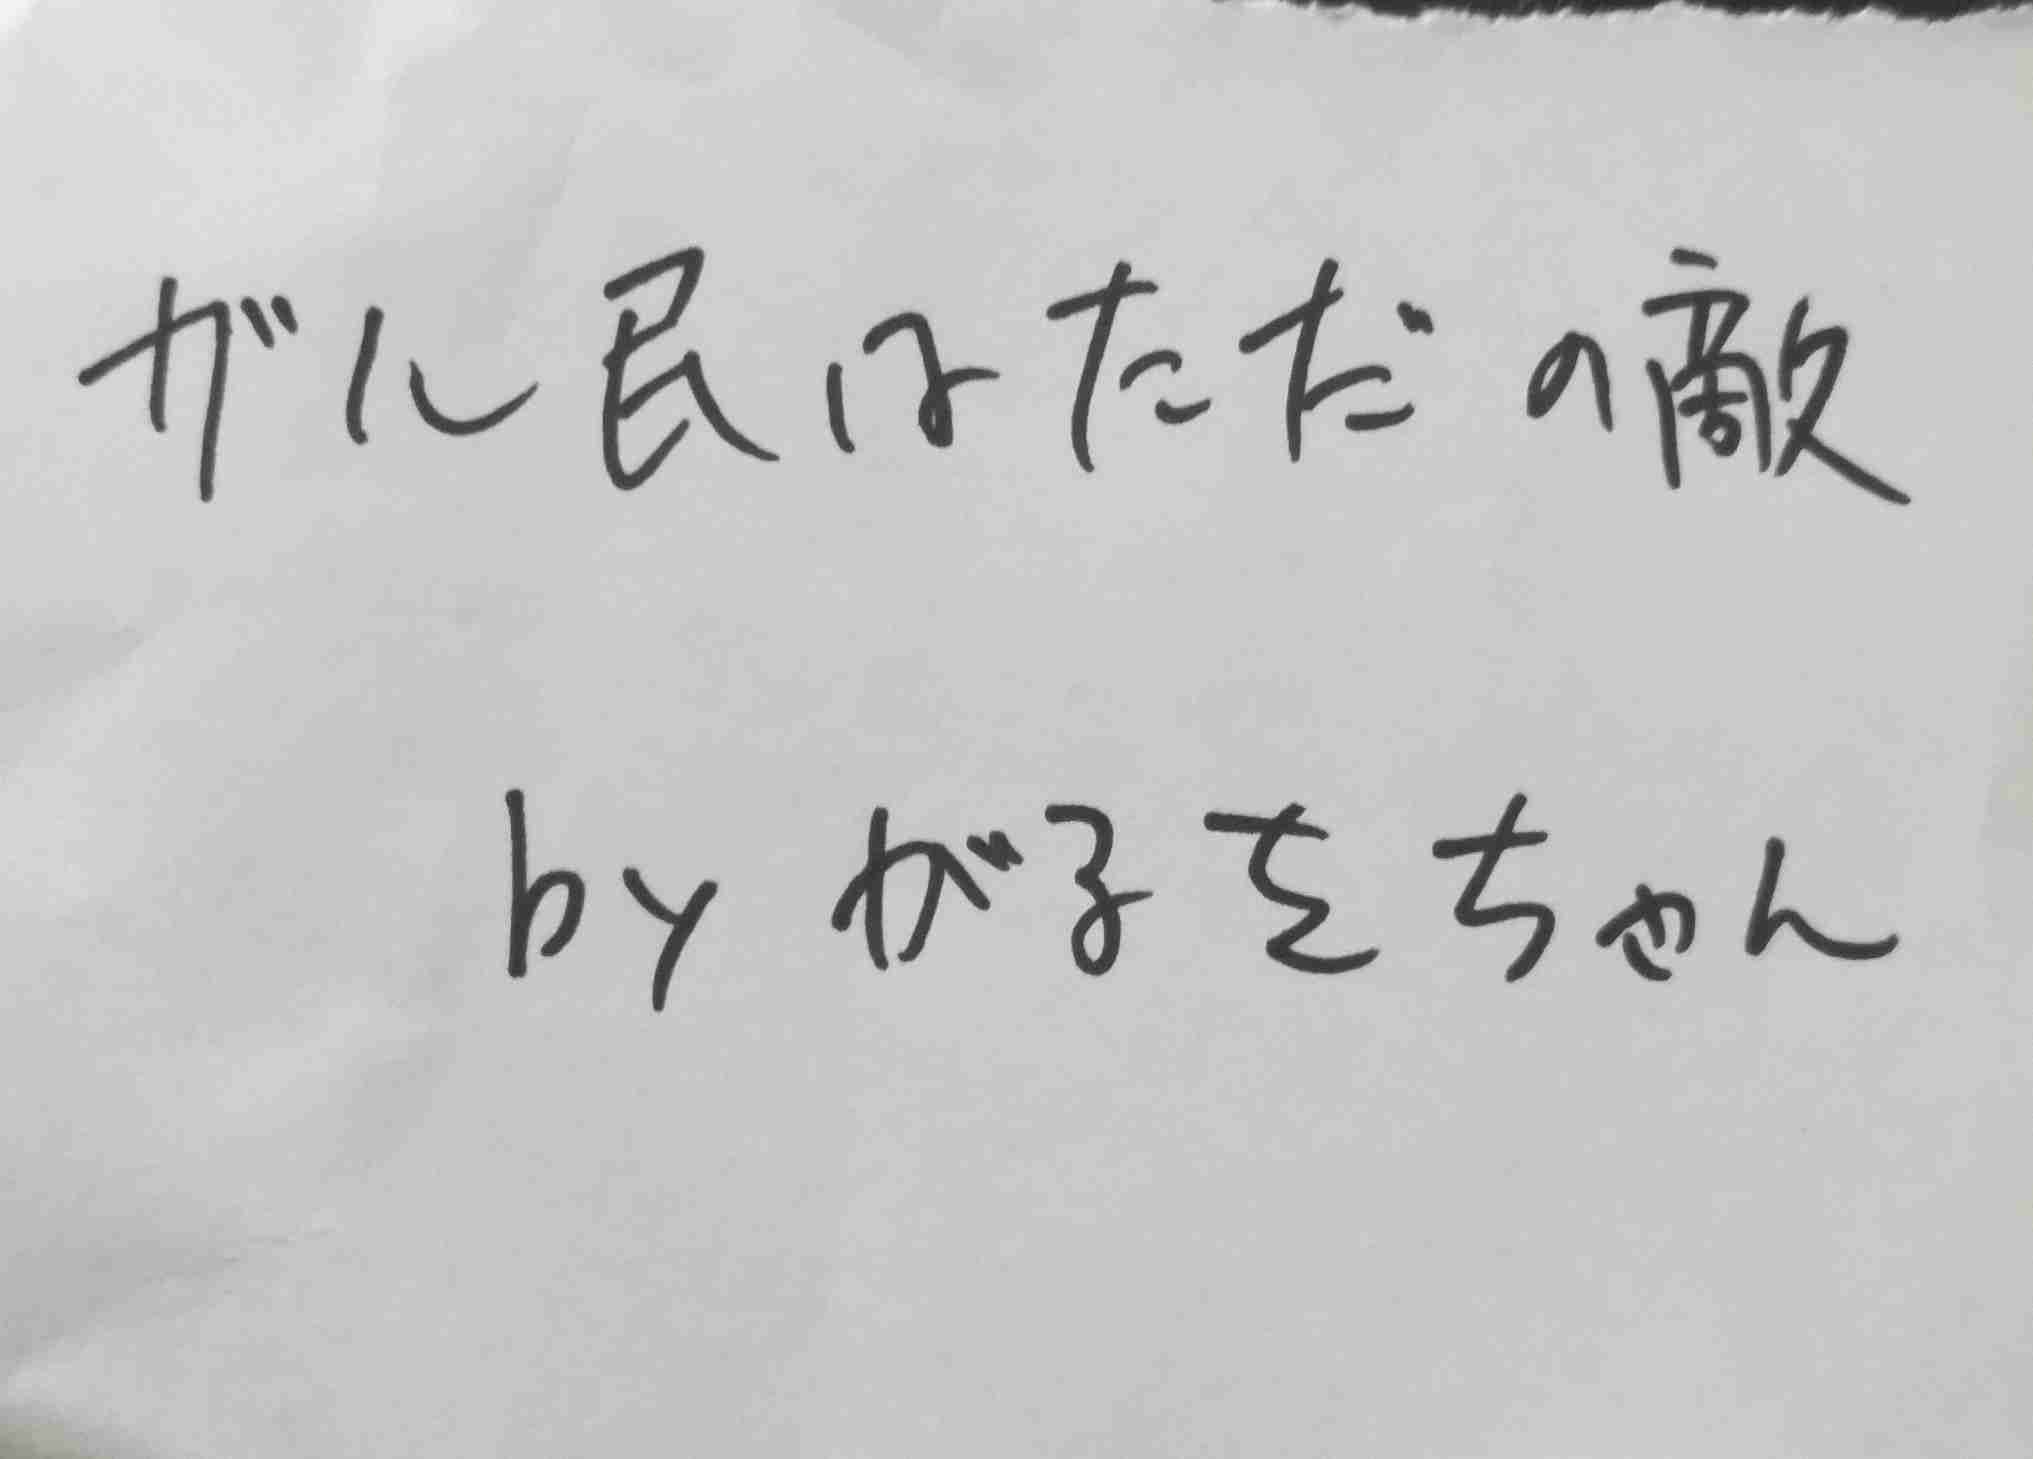 ガル民はただの敵
by がるをちゃん